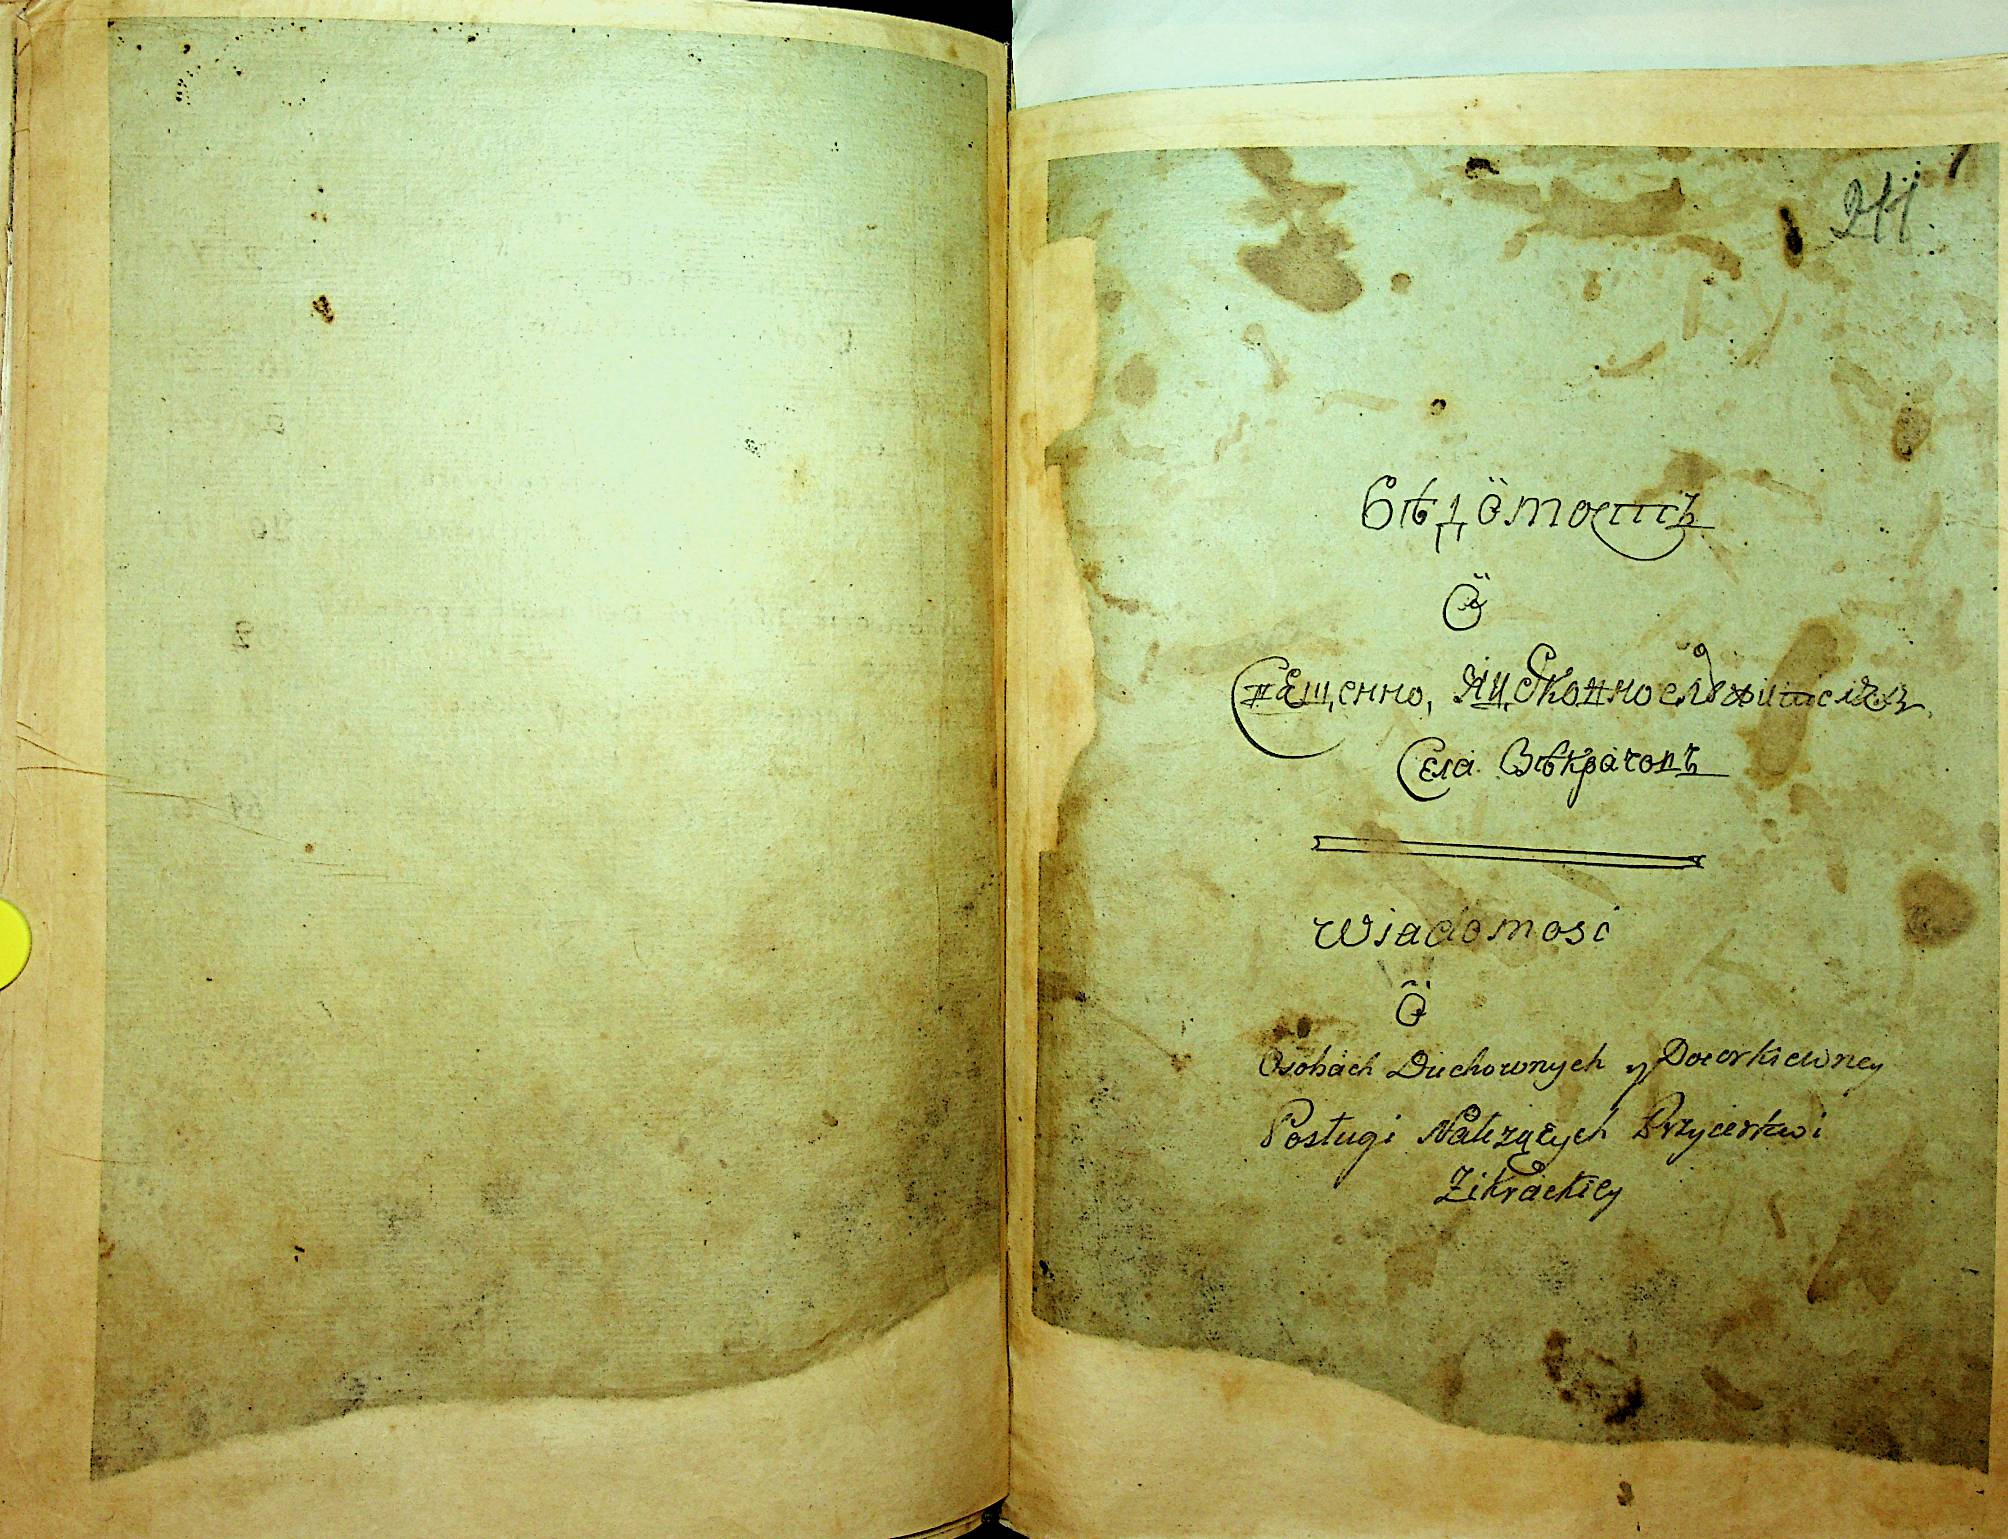 211
Вѣдомость
О
Священно, И Церковнослужителѣхъ
Села Зѣкрачопъ
Wiadomosc
O
Osobach Duchownych y Docerkiewney
Posługi Należących Przycerkwi
Zikrackiey